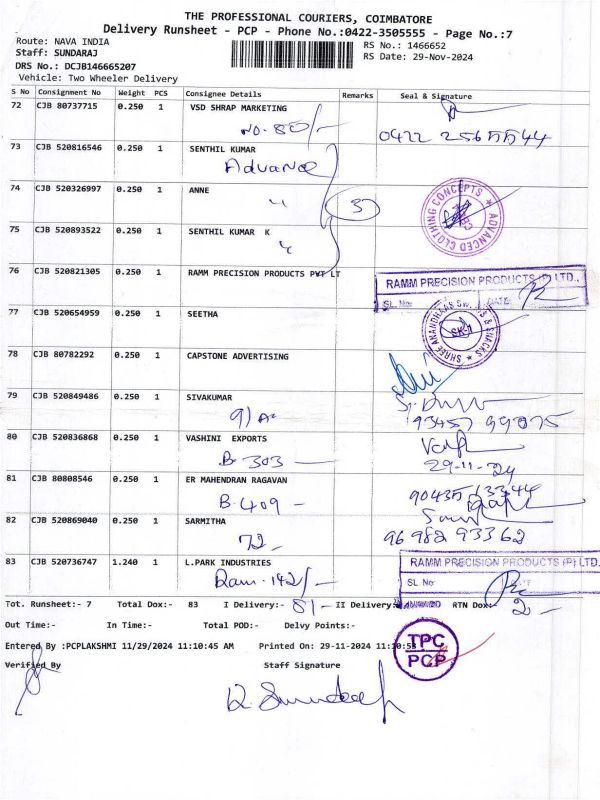 THE PROFESSIONAL COURIERS, COIMBATORE
Delivery Runsheet - PCP - Phone No.:0422-3505555 - Page No.:7
Route: NAVA INDIA RS No.: 1466652
Staff: SUNDARAJ RS Date: 29-Nov-2024
DRS No.: DCJB146665207
Vehicle: Two Wheeler Delivery
S No Consignment No Weight PCS Consignee Details Remarks Seal & Signature
72 CJB 80737715 0.250 1 VSD SHRAP MARKETING
No. 80/- 0422 2565544
73 CJB 520816546 0.250 1 SENTHIL KUMAR
Advance
74 CJB 520326997 0.250 1 ANNE
" 3 ADVANCED CLOTHING CONCEPTS
75 CJB 520893522 0.250 1 SENTHIL KUMAR K
"
76 CJB 520821305 0.250 1 RAMM PRECISION PRODUCTS PVT LT
RAMM PRECISION PRODUCTS (P) LTD.,
SL. No: DATE
77 CJB 520654959 0.250 1 SEETHA
SHREE ANANDHAAS SWEETS & SNACKS
78 CJB 80782292 0.250 1 CAPSTONE ADVERTISING
79 CJB 520849486 0.250 1 SIVAKUMAR
93457 99075
80 CJB 520836868 0.250 1 VASHINI EXPORTS
B-303 29-11-24
81 CJB 80808546 0.250 1 ER MAHENDRAN RAGAVAN
B-409 90435 13344
82 CJB 520869040 0.250 1 SARMITHA
72 96982 93362
83 CJB 520736747 1.240 1 L.PARK INDUSTRIES
142/-
RAMM PRECISION PRODUCTS (P) LTD.
SL No
Tot. Runsheet:- 7 Total Dox:- 83 I Delivery:- 81- II Delivery: RTN Dox:- 2-
Out Time:- In Time:- Total POD:- Delvy Points:-
Entered By :PCPLAKSHMI 11/29/2024 11:10:45 AM Printed On: 29-11-2024
TPC
PCP
Verified By Staff Signature